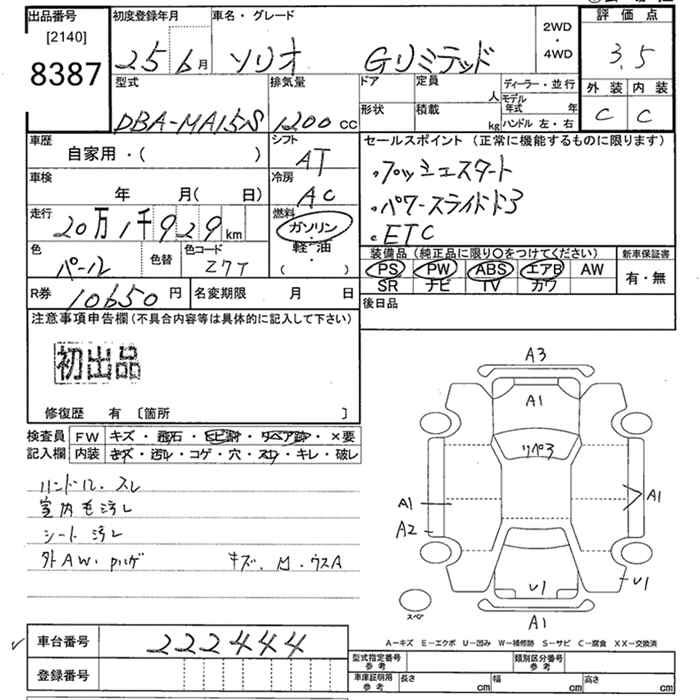 出品番号 初度登録年月 車名・グレード 2WD・4WD 評価点
[2140]
8387 25 6月 ソリオ Gリミテッド 3.5
型式 排気量 ドア 定員 人 ディーラー・並行 外装 内装
形状 積載 kg モデル年式 年 ハンドル 左・右
DBA-MA15S 1200 CC C C
車歴 シフト セールスポイント (正常に機能するものに限ります)
自家用・( ) AT
・プッシュスタート
車検 冷房
年 月( 日) AC ・パワースライドド3
走行 燃料
20万1千929km ガソリン ・ETC
色 色替 色コード 軽油 装備品(純正品に限り○をつけてください) 新車保証書
パール Z7T ( ・ ) PS PW ABS エアB AW 有・無
SR ナビ TV カワ
R券 10650円 名変期限 月 日 後日品
注意事項申告欄(不具合内容等は具体的に記入して下さい)
初出品
修復歴 有 [箇所 ]
検査員 FW キズ・飛石・ヒビ割・リペア跡・×要
記入欄 内装 キズ・汚レ・コゲ・穴・スレ・キレ・破レ
ハンドル、スレ
室内毛汚レ
シート汚レ
外AW、ハゲ キズ、凹、ウスA
A3
A1
リペア3
A1 A1
A2
U1 U1
スペア A1
A-キズ E-エクボ U-凹み W-補修跡 S-サビ C-腐食 XX-交換済
車台番号 222444
登録番号
型式指定番号 参考 類別区分番号 参考
車庫証明用 参考 長さ cm 幅 cm 高さ cm